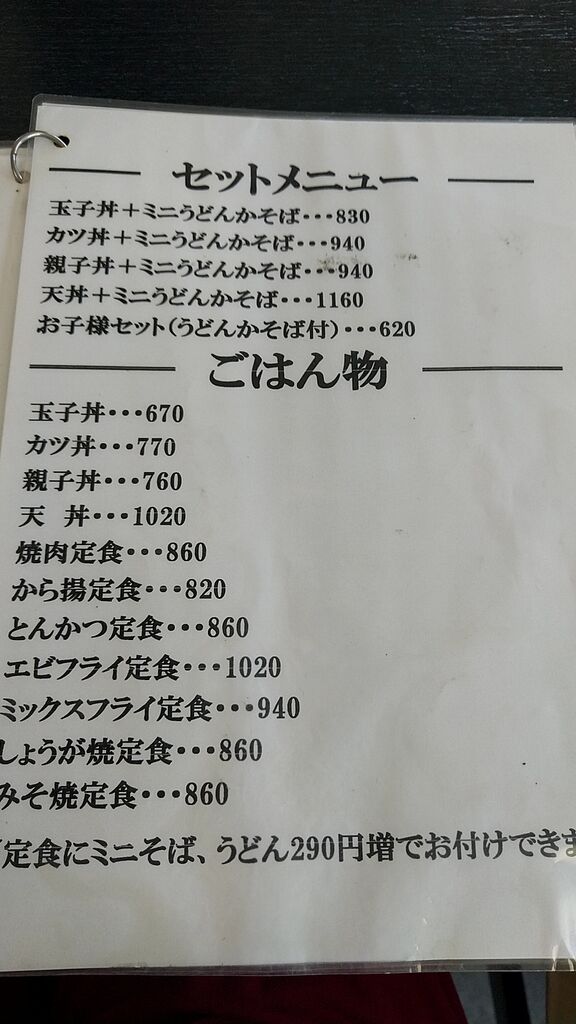 セットメニュー
玉子丼＋ミニうどんかそば・・・830
カツ丼＋ミニうどんかそば・・・940
親子丼＋ミニうどんかそば・・・940
天丼＋ミニうどんかそば・・・1160
お子様セット(うどんかそば付)・・・620
ごはん物
玉子丼・・・670
カツ丼・・・770
親子丼・・・760
天　丼・・・1020
焼肉定食・・・860
から揚定食・・・820
とんかつ定食・・・860
エビフライ定食・・・1020
ミックスフライ定食・・・940
しょうが焼定食・・・860
みそ焼定食・・・860
定食にミニそば、うどん290円増でお付けできま